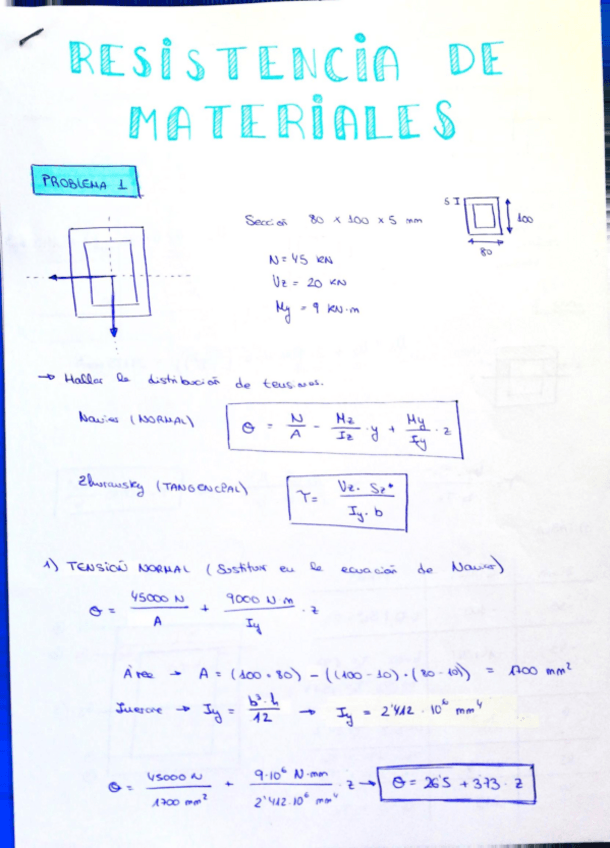 RESISTENCIA DE
MATERIALES
PROBLEMA 1
Sección 80 x 100 x 5 mm
5
100
80
N = 45 KN
Vz = 20 KN
My = 9 KN·m
→ Hallar la distribución de tensiones.
Navier (NORMAL)
σ = N/A - Mz/Iz · y + My/Iy · z
Zhuravsky (TANGENCIAL)
τ = Vz · Sz*/Iy · b
1) TENSIÓN NORMAL (Sustituir en la ecuación de Navier)
σ = 45000 N/A + 9000 N m/Iy · z
Área → A = (100 · 80) - ((100 - 10) · (80 - 10)) = 1700 mm²
Inercia → Iy = b³·h/12 → Iy = 2'412 · 10⁶ mm⁴
σ = 45000 N/1700 mm² + 9·10⁶ N·mm/2'412·10⁶ mm⁴ · z → σ = 26'5 + 3'73 · z